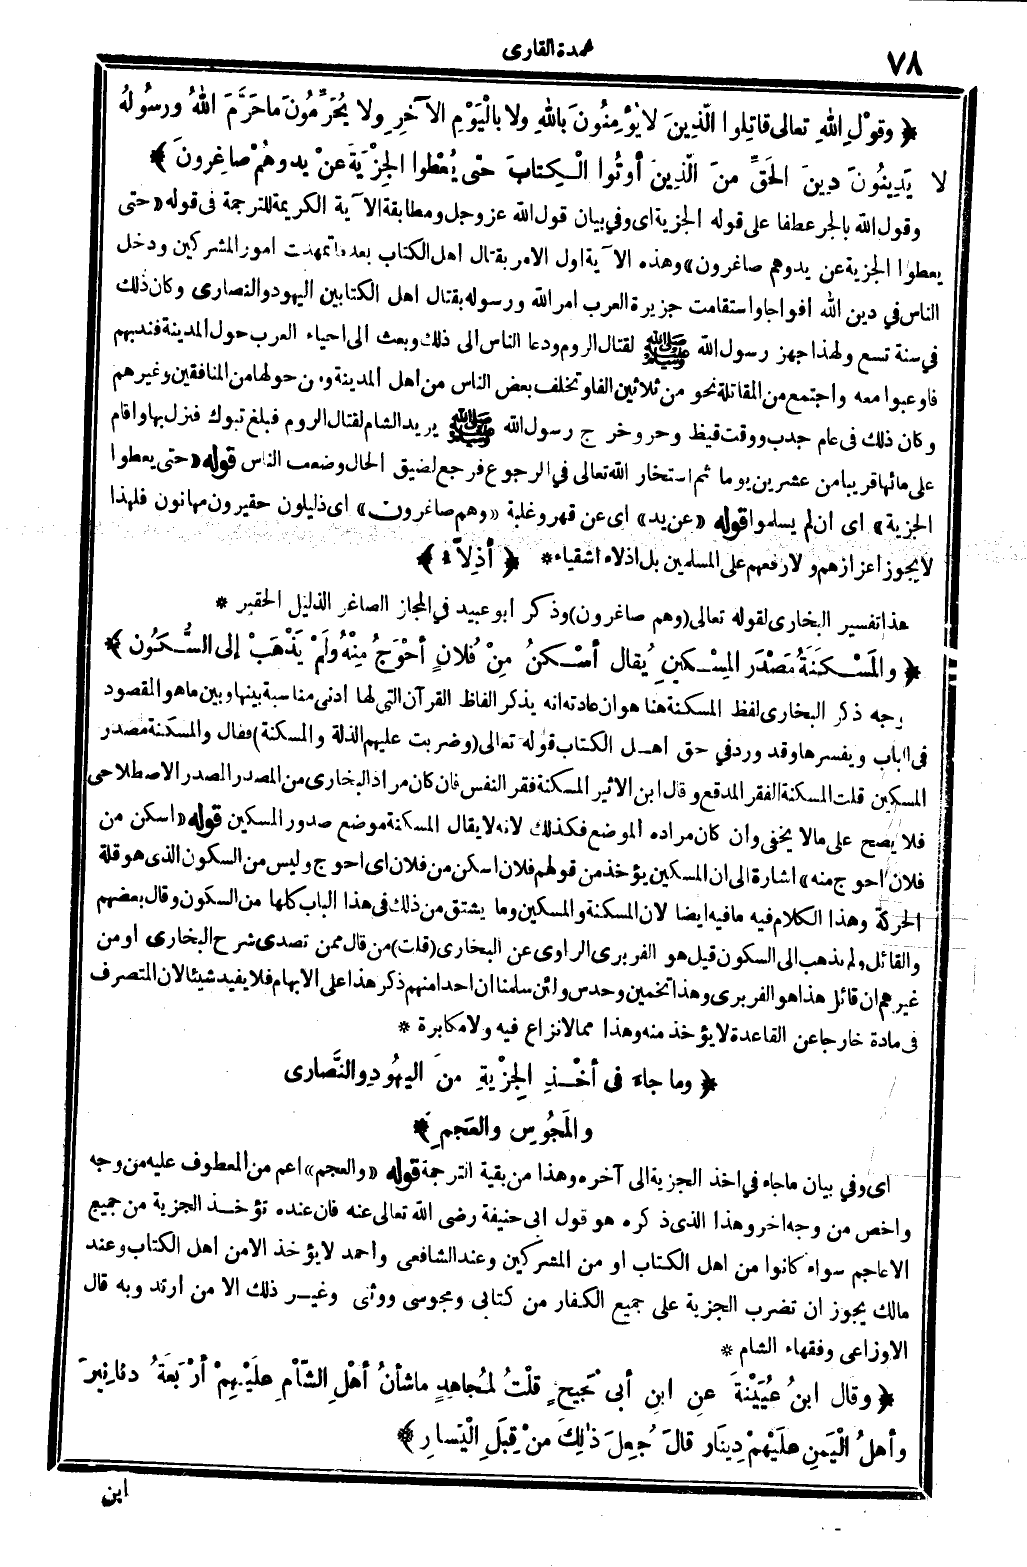 ٧٨
عمدة القارى
﴿ وقوْلِ اللهِ تعالى قاتِلوا الَّذِينَ لا يُؤْمِنُونَ باللهِ ولا بالْيَوْمِ الآخِرِ ولا يُحَرِّمُونَ ما حَرَّمَ اللهُ ورسُولُهُ
لا يَدِينُونَ دِينَ الحَقِّ منَ الَّذِينَ أُوتُوا الْكِتابَ حتى يُعْطوا الجِزْيَةَ عنْ يدٍ وهُمْ صاغِرونَ ﴾
وقول الله بالجر عطفا على قوله الجزية اى وفي بيان قول الله عز وجل ومطابقة الآية الكريمة للترجمة فى قوله «حتى
يعطوا الجزية عن يد وهم صاغرون» وهذه الآية اول الامر بقتال اهل الكتاب بعد ما تمهدت امور المشركين ودخل
الناس في دين الله افواجا واستقامت جزيرة العرب امر الله ورسوله بقتال اهل الكتابين اليهود والنصارى وكان ذلك
في سنة تسع ولهذا جهز رسول الله ﷺ لقتال الروم ودعا الناس الى ذلك وبعث الى احياء العرب حول المدينة فندبهم
فاوعبوا معه واجتمع من المقاتلة نحو من ثلاثين الفا وتخلف بعض الناس من اهل المدينة ومن حولها من المنافقين وغيرهم
وكان ذلك فى عام جدب ووقت قيظ وحر وخرج رسول الله ﷺ يريد الشام لقتال الروم فبلغ تبوك فنزل بها واقام
على مائها قريبا من عشرين يوما ثم استخار الله تعالى في الرجوع فرجع لضيق الحال وضعف الناس قوله «حتى يعطوا
الجزية» اى ان لم يسلموا قوله «عن يد» اى عن قهر وغلبة «وهم صاغرون» اى ذليلون حقيرون مهانون فلهذا
لا يجوز اعزازهم ولا رفعهم على المسلمين بل اذلاء اشقياء * ﴿ أذِلَّاءُ ﴾
هذا تفسير البخارى لقوله تعالى (وهم صاغرون) وذكر ابو عبيد في المجاز الصاغر الذليل الحقير *
﴿ والمَسْكَنَةُ مَصْدَر المِسْكِينِ يُقال أسْكنُ مِنْ فُلانٍ أحْوَجُ مِنْهُ ولَمْ يَذْهَبْ إلى السُّكُون ﴾
وجه ذكر البخارى لفظ المسكنة هنا هو ان عادته انه يذكر الفاظ القرآن التى لها ادنى مناسبة بينها وبين ما هو المقصود
فى الباب ويفسرها وقد ورد في حق اهل الكتاب قوله تعالى (وضربت عليهم الذلة والمسكنة) فقال والمسكنة مصدر
المسكين قلت المسكنة الفقر المدقع وقال ابن الاثير المسكنة فقر النفس فان كان مراد البخارى من المصدر المصدر الاصطلاحى
فلا يصح على ما لا يخفى وان كان مراده الموضع فكذلك لانه لا يقال المسكنة موضع صدور المسكين قوله «اسكن من
فلان احوج منه» اشارة الى ان المسكين يؤخذ من قولهم فلان اسكن من فلان اى احوج وليس من السكون الذى هو قلة
الحركة وهذا الكلام فيه ما فيه ايضا لان المسكنة والمسكين وما يشتق من ذلك فى هذا الباب كلها من السكون وقال بعضهم
والقائل ولم يذهب الى السكون قيل هو الفربرى الراوى عن البخارى (قلت) من قال ممن تصدى شرح البخارى او من
غيرهم ان قائل هذا هو الفربرى وهذا تخمين وحدس ولئن سلمنا ان احدا منهم ذكر هذا على الابهام فلا يفيد شيئا لان المتصرف
فى مادة خارجا عن القاعدة لا يؤخذ منه وهذا مما لا نزاع فيه ولا مكابرة *
﴿ وما جاء فى أخْذِ الجِزْيةِ منَ اليهُودِ والنَّصارى
والمَجُوسِ والعَجمِ ﴾
اى وفي بيان ما جاء في اخذ الجزية الى آخره وهذا من بقية الترجمة قوله «والعجم» اعم من المعطوف عليه من وجه
واخص من وجه اخر وهذا الذى ذكره هو قول ابى حنيفة رضى الله تعالى عنه فان عنده تؤخذ الجزية من جميع
الاعاجم سواء كانوا من اهل الكتاب او من المشركين وعند الشافعى واحمد لا يؤخذ الا من اهل الكتاب وعند
مالك يجوز ان تضرب الجزية على جميع الكفار من كتابى ومجوسى ووثنى وغير ذلك الا من ارتد وبه قال
الاوزاعى وفقهاء الشام *
﴿ وقال ابنُ عُيَيْنَةَ عنِ ابنِ أبى نَجِيحٍ قلْتُ لمُجاهِدٍ ما شأنُ أهْلِ الشَّأْمِ علَيْهِمْ أرْبَعَةُ دنانِيرَ
وأهلُ الْيَمنِ علَيْهمْ دِينَار قالَ جُعِلَ ذلِكَ منْ قِبَلِ الْيَسارِ ﴾
ابن